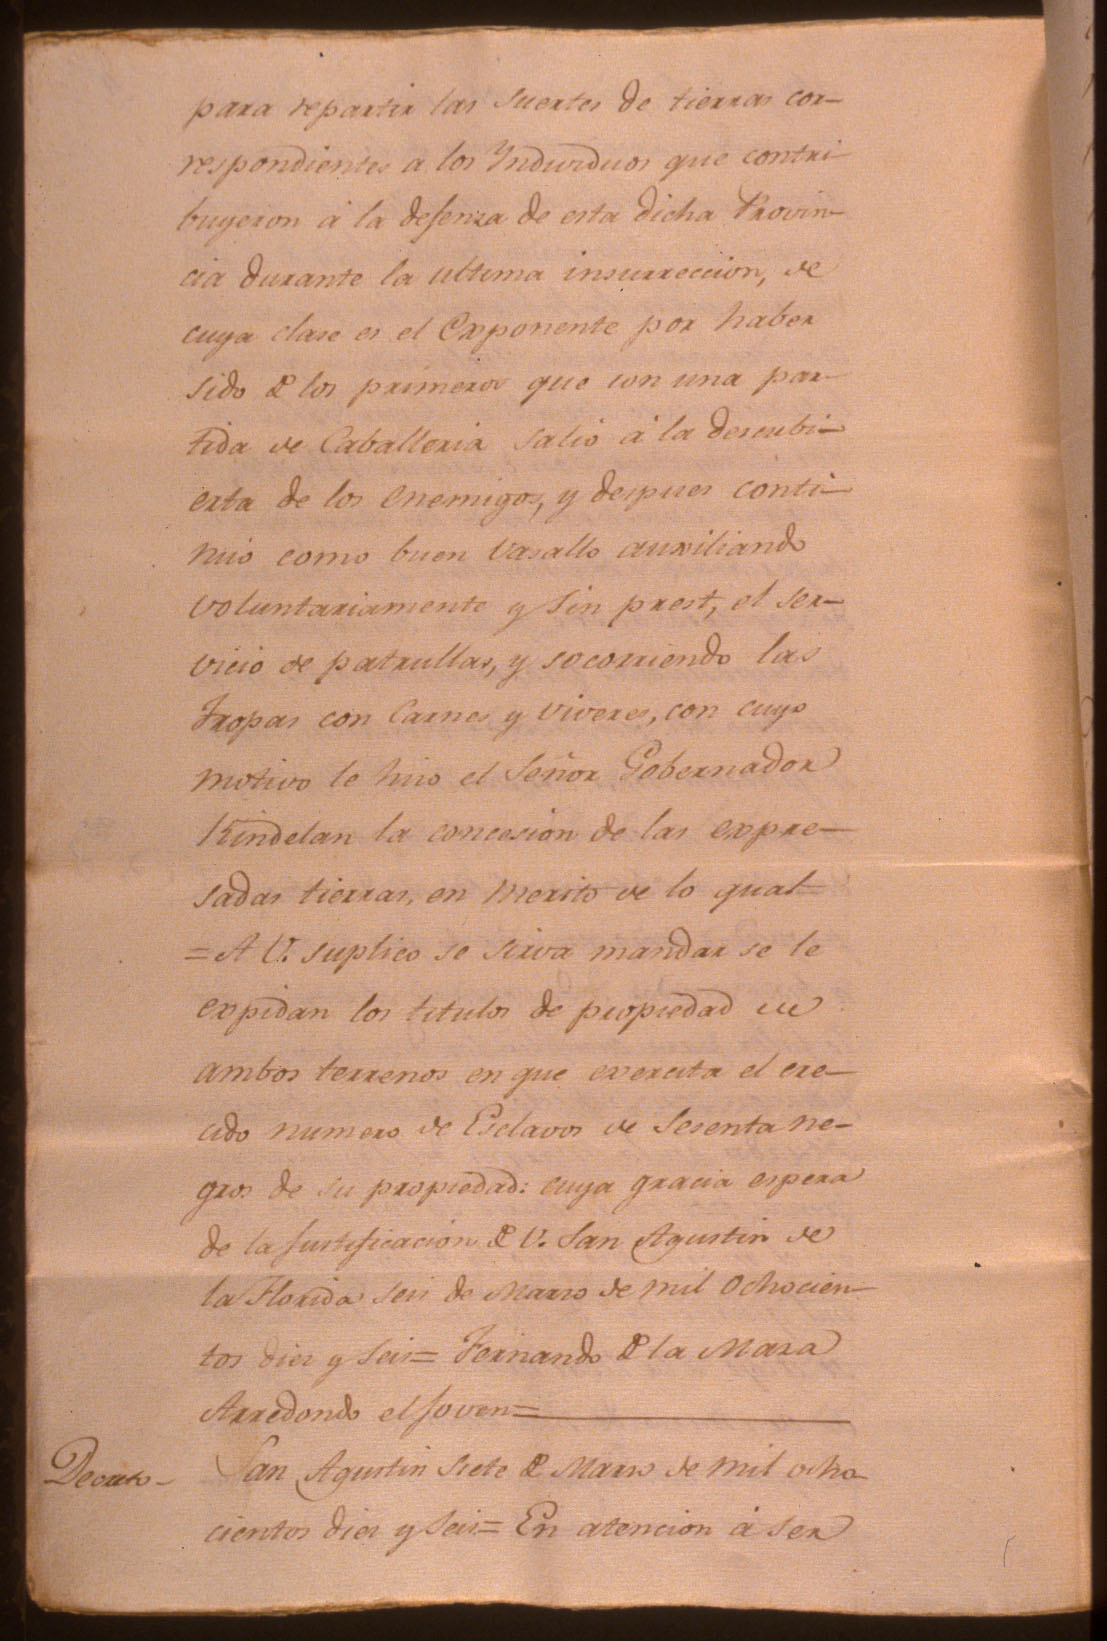 para repartir las suertes de tierras cor-
respondientes a los Yndividuos que contri-
bugeron á la defenza de esta dicha Provin-
cia durante la ultima insurreccion, de
cuya clase es el Exponente por haber
sido de los primeros que con una par-
tida de Caballeria salió á la descubi-
erta de los enemigos, y despues conti-
nuó como buen Vasallo auxiliando
voluntariamente y sin prest, el ser-
vicio de patrullas, y socorriendo las
Tropas con Carnes y viveres, con cuyo
motivo le hizo el Señor Gobernador
Kindelan la concesion de las expre-
sadas tierras, en merito de lo qual=
=A V. suplico se sirva mandar se le
expidan los titulos de propiedad de
ambos terrenos en que exercita el cre-
cido numero de Esclavos de Sesenta ne-
gros de su propiedad: cuya gracia espera
de la justificacion de V. San Agustin de
la Florida seis de Marzo de mil ochocien-
tos diez y seis= Fernando de la Maza
Arredondo el joven=
Decreto- San Agustin siete de Marzo de mil ocho-
cientos diez y seis= En atencion á ser